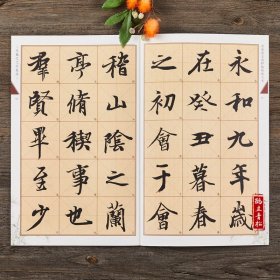 永和九年歲
在癸丑暮春
之初會于會
稽山陰之蘭
亭脩稧事也
羣賢畢至少